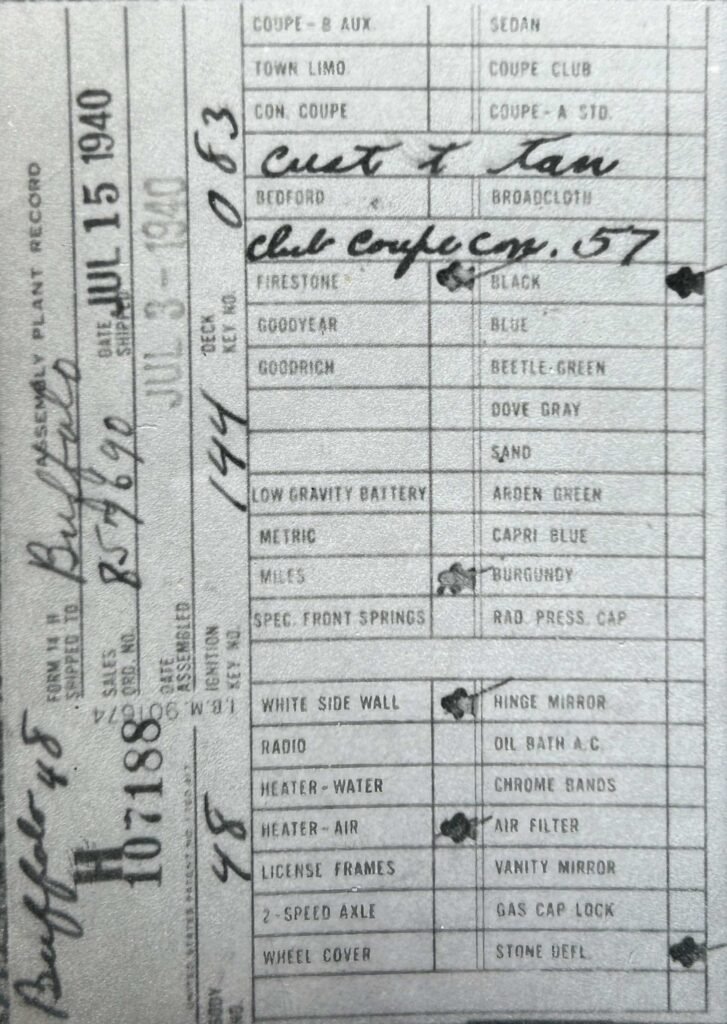 Buffalo 48
H
107188
FORM 14 H ASSEMBLY PLANT RECORD
SHIPPED TO Buffalo
SALES ORD. NO. 857690
DATE SHIPPED JUL 15 1940
DATE ASSEMBLED JUL 3 - 1940
I.B.M. 901674
UNITED STATES PATENT NO.
BODY NO. 48
IGNITION KEY NO. 144
DECK KEY NO. 083
COUPE - B AUX. SEDAN
TOWN LIMO. COUPE CLUB
CON. COUPE COUPE - A STD.
cust t tan
BEDFORD BROADCLOTH
club coupe con. 57
FIRESTONE BLACK
GOODYEAR BLUE
GOODRICH BEETLE-GREEN
DOVE GRAY
SAND
LOW GRAVITY BATTERY ARDEN GREEN
METRIC CAPRI BLUE
MILES BURGUNDY
SPEC. FRONT SPRINGS RAD. PRESS. CAP
WHITE SIDE WALL HINGE MIRROR
RADIO OIL BATH A.C.
HEATER - WATER CHROME BANDS
HEATER - AIR AIR FILTER
LICENSE FRAMES VANITY MIRROR
2-SPEED AXLE GAS CAP LOCK
WHEEL COVER STONE DEFL.